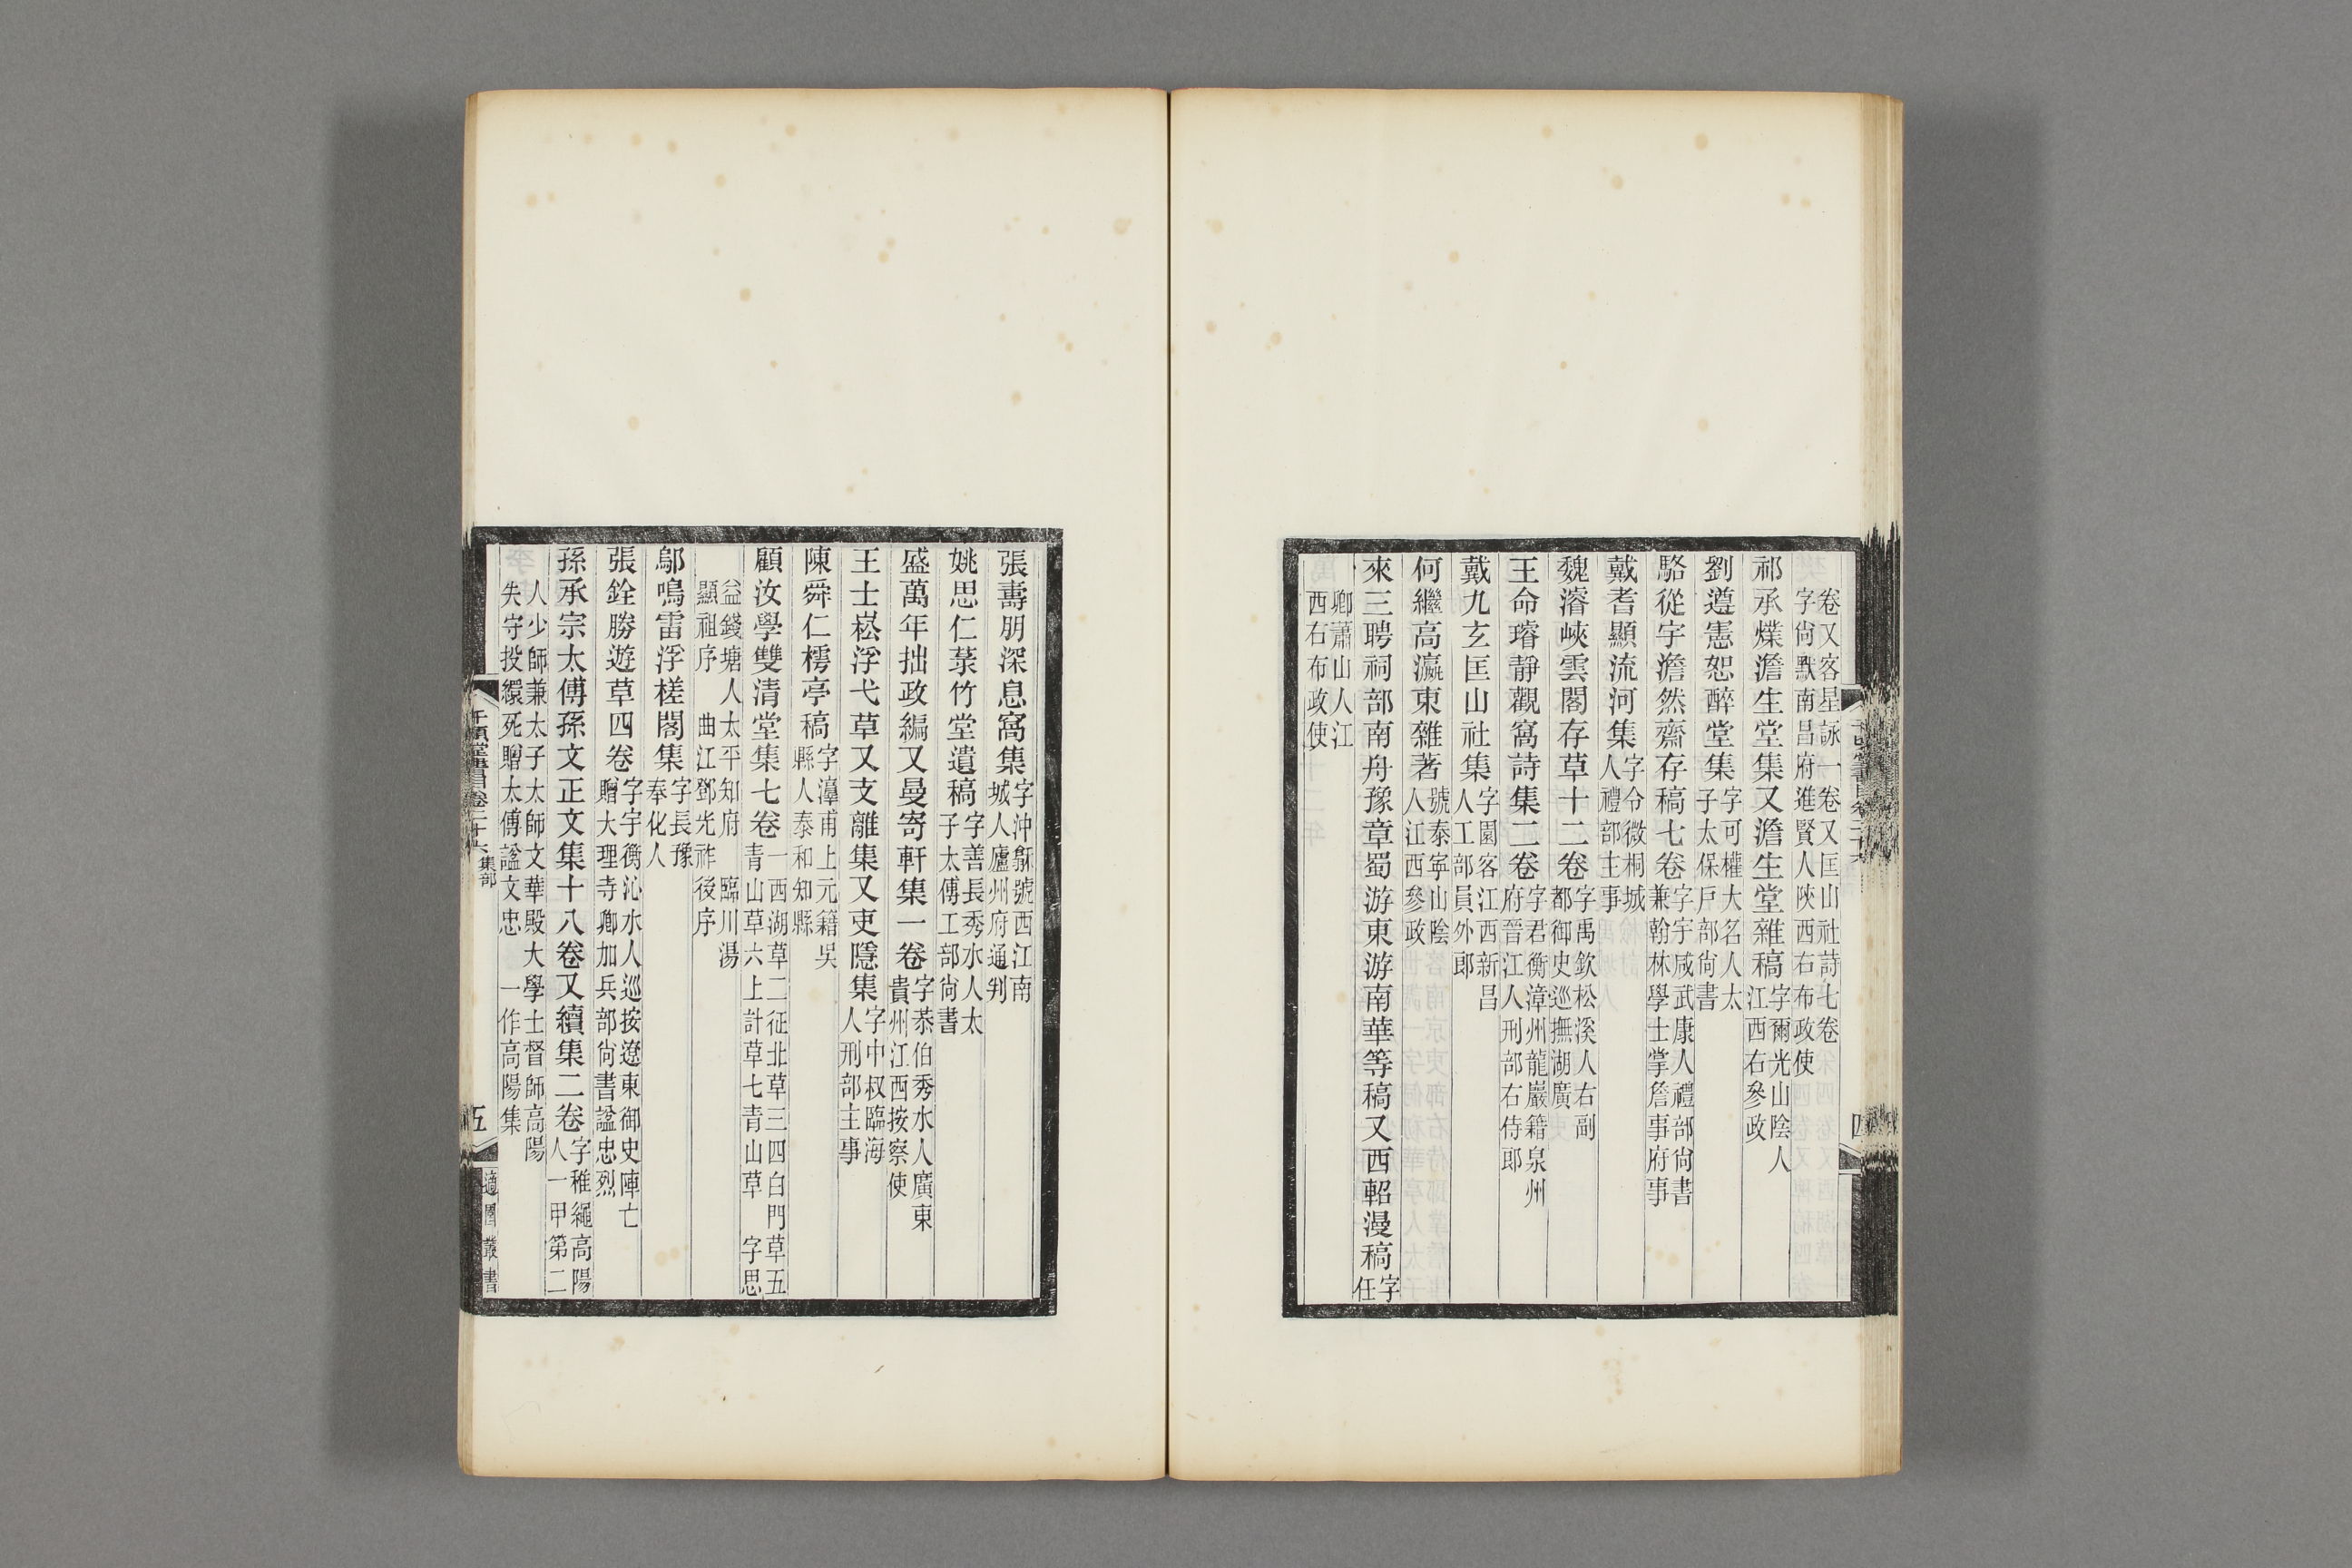 卷又客星詠一卷又匡山社詩七卷
字尙默南昌府進賢人陝西右布政使
祁承㸁澹生堂集又澹生堂雜稿字爾光山陰人
江西右參政
劉遵憲恕醉堂集字可權大名人太
子太保戶部尙書
駱從宇澹然齋存稿七卷字宇咸武康人禮部尙書
兼翰林學士掌詹事府事
戴耆顯流河集字令微桐城
人禮部主事
魏濬峽雲閣存草十二卷字禹欽松溪人右副
都御史巡撫湖廣
王命璿靜觀窩詩集二卷字君衡漳州龍巖籍泉州
府晉江人刑部右侍郎
戴九玄匡山社集字園客江西新昌
人工部員外郎
何繼高瀛東雜著號泰寧山陰
人江西參政
來三聘祠部南舟豫章蜀游東游南華等稿又西軺漫稿字
任
卿蕭山人江
西右布政使
四
張壽朋深息窩集字沖龢號西江南
城人廬州府通判
姚思仁菉竹堂遺稿字善長秀水人太
子太傅工部尙書
盛萬年拙政編又曼寄軒集一卷字恭伯秀水人廣東
貴州江西按察使
王士崧浮弋草又支離集又吏隱集字中叔臨海
人刑部主事
陳舜仁樗亭稿字漳甫上元籍吳
縣人泰和知縣
顧汝學雙清堂集七卷一西湖草二征北草三四白門草五
青山草六上計草七青山草 字思
益錢塘人太平知府 臨川湯
顯祖序 曲江鄧光祚後序
鄔鳴雷浮槎閣集字長豫
奉化人
張銓勝遊草四卷字宇衡沁水人巡按遼東御史陣亡
贈大理寺卿加兵部尙書諡忠烈
孫承宗太傅孫文正文集十八卷又續集二卷字稚繩高陽
人一甲第二
人少師兼太子太師文華殿大學士督師高陽
失守投繯死贈太傅諡文忠 一作高陽集
千頃堂書目卷二十六集部
五
適園叢書